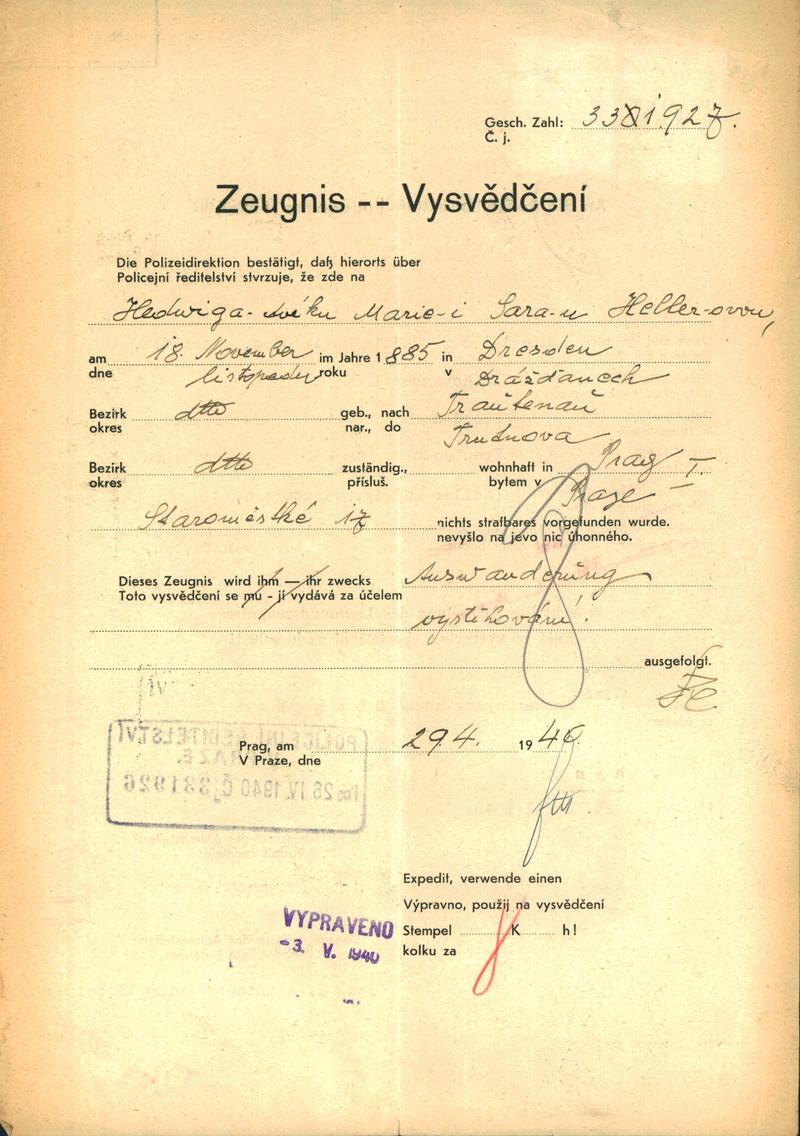 Gesch. Zahl: 331927.
Č. j.
Zeugnis -- Vysvědčení
Die Polizeidirektion bestätigt, daß hierorts über
Policejní ředitelství stvrzuje, že zde na
Hedwiga- Marie-i Sara-u Heller-ovou,
am 18. November im Jahre 1885 in Dresden
dne listopadu roku v Drážďanech
Bezirk dtto geb., nach Trautenau
okres nar., do Trutnova
Bezirk dtto zuständig., wohnhaft in Prag I.
okres přísluš. bytem v Praze
Staroměstské 17 nichts strafbares vorgefunden wurde.
nevyšlo na jevo nic úhonného.
Dieses Zeugnis wird ihm — ihr zwecks Auswanderung
Toto vysvědčení se mu - jí vydává za účelem
vystěhování.
ausgefolgt.
POLICEJNÍ ŘEDITELSTVÍ
V PRAZE.
26 IV. 1940 Č. 331926
Prag, am 29.4. 1940.
V Praze, dne
Expedit, verwende einen
Výpravno, použij na vysvědčení
VYPRAVENO
Stempel K h!
-3. V. 1940
kolku za